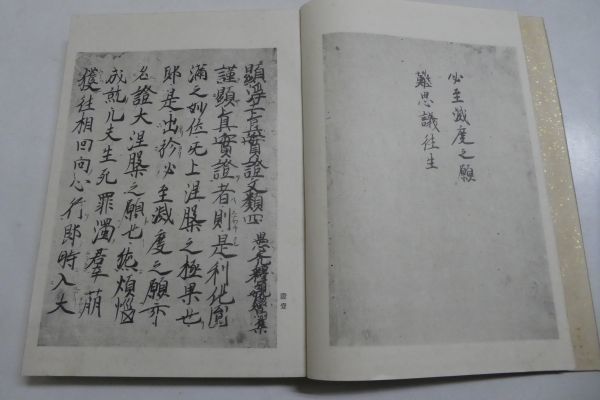 必至滅度之願
難思議往生
顕浄土真實證文類四
愚禿釋親鸞集
謹顕真實證者則是利他圓
滿之妙位无上涅槃之極果也
即是出於必至滅度之願亦
名證大涅槃之願也然煩惱
成就凡夫生死罪濁群萌
獲往相回向心行即時入大